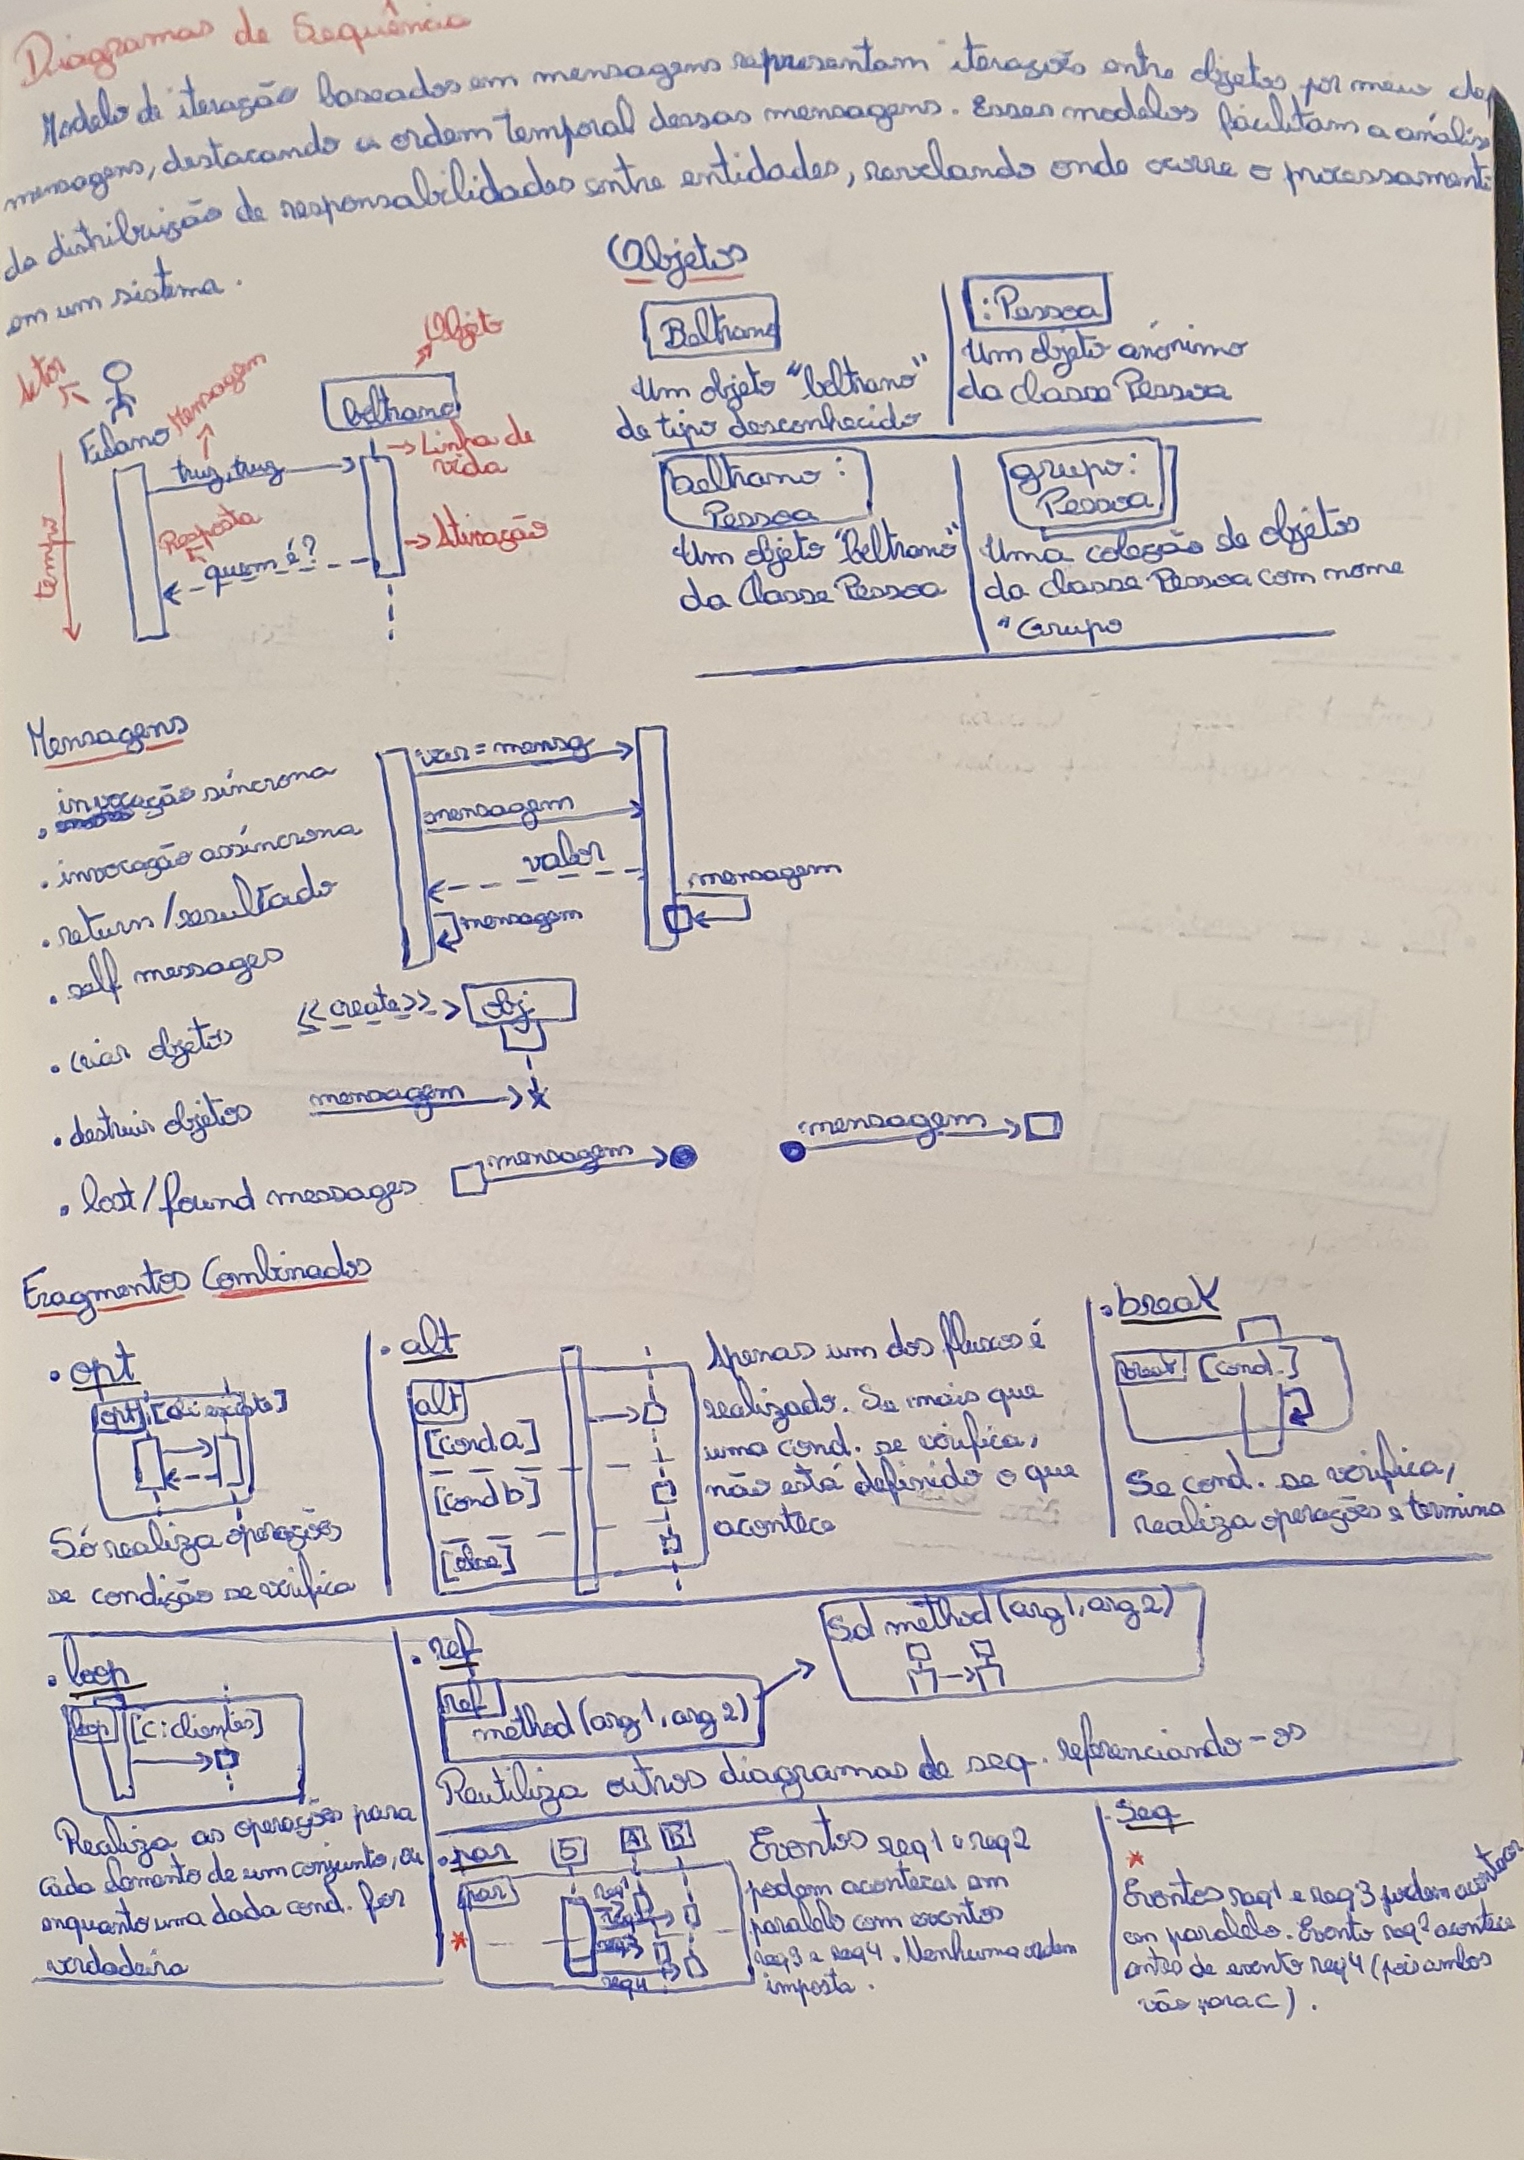 Diagramas de Sequência
Modelo de iteração baseados em mensagens representam iterações entre objetos por meio de
mensagens, destacando a ordem temporal dessas mensagens. Esses modelos facilitam a análise
da distribuição de responsabilidades entre entidades, revelando onde ocorre o processamento
em um sistema.
Ator
Fulano
Mensagem
Objeto
beltrano
Linha de
vida
truz, truz
Resposta
quem é?
Ativação
tempo
Objetos
Beltrano
Um objeto "beltrano"
de tipo desconhecido
:Pessoa
Um objeto anónimo
da classe Pessoa
beltrano:
Pessoa
Um objeto "beltrano"
da Classe Pessoa
grupo:
Pessoa
Uma coleção de objetos
da classe Pessoa com nome
"Grupo
Mensagens
• invocação síncrona
• invocação assíncrona
• return/resultado
• self messages
• criar objetos
• destruir objetos
• lost/found messages
var = mensg
mensagem
valor
mensagem
mensagem
<<create>>
obj
mensagem
mensagem
mensagem
Fragmentos Combinados
• opt
opt
Só realiza operações
se condição se verifica
• alt
alt
[cond a]
[cond b]
[else]
Apenas um dos fluxos é
realizado. Se mais que
uma cond. se verifica,
não está definido o que
acontece
• break
break [cond.]
Se cond. se verifica,
realiza operações e termina
• loop
loop [c:clientes]
Realiza as operações para
cada elemento de um conjunto, ou
enquanto uma dada cond. for
verdadeira
• ref
ref
method(arg1, arg2)
Sd method(arg1, arg2)
Reutiliza outros diagramas de seq. referenciando-os
• par
A
B
par
req1
req3
req4
*
Eventos req1 e req2
podem acontecer em
paralelo com eventos
req3 e req4. Nenhuma ordem
imposta.
• Seq
*
Eventos req1 e req3 podem acontecer
em paralelo. Evento req2 acontece
antes de evento req4 (pois ambos
vão para C).